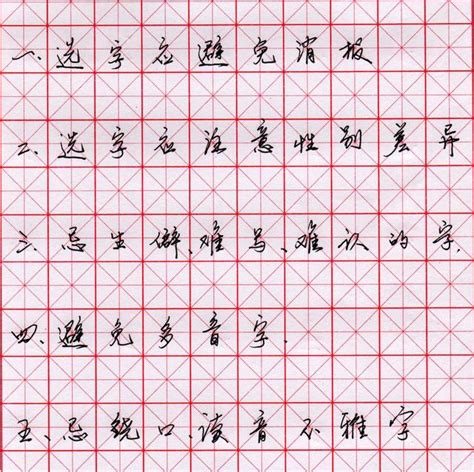 一、选字应避免消极
二、选字应注意性别差异
三、忌生僻、难写、难认的字.
四、避免多音字.
五、忌绕口、读音不雅字